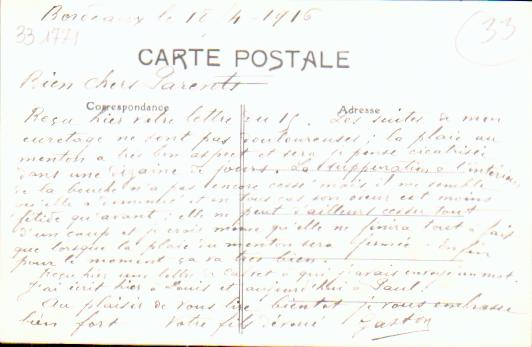 Bordeaux le 18/4-1916
33 1771
33
CARTE POSTALE
Bien chers Parents
Correspondance
Adresse
Reçu hier votre lettre du 15. Les suites de mon
curetage ne sont pas douloureuses; la plaie au
menton a très bon aspect et sera je pense cicatrisée
dans une dizaine de jours. La suppuration à l'intérieur
de la bouche n'a pas encore cessé mais il me semble
qu'elle a diminué et en tous cas son odeur est moins
fétide qu'avant; elle ne peut d'ailleurs cesser tout
d'un coup et je crois même qu'elle ne finira tout à fait
que lorsque la plaie du menton sera fermée. Enfin
pour le moment ça va très bien.
Reçu hier une lettre de à qui j'avais envoyé un mot.
J'ai écrit hier à Louis et aujourd'hui à Paul.
Au plaisir de vous lire bientôt je vous embrasse
bien fort Votre fils dévoué Gaston